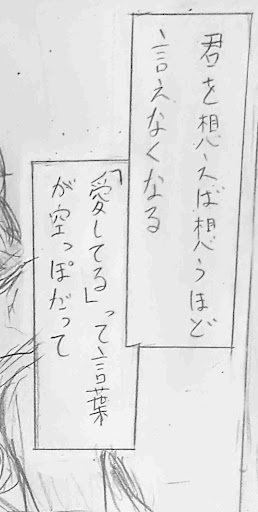 君を想えば想うほど
言えなくなる
「愛してる」って言葉
が空っぽだって